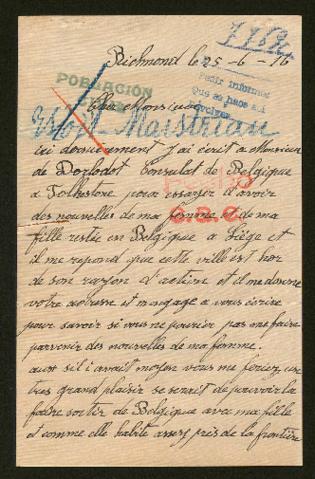 Richmond le 25-6-16
POBLACIÓN
Pedir informes
Que se hace a.i
Cher Monsieur
Maistriau
ici document j'ai ecrit a Monsieur
de Dorlodot Consulat de Belgique
a Folkstone pour essayer d'avoir
des nouvelles de ma femme et de ma
fille restée en Belgique a Liège et
il me repond que cette ville est hor
de son rayon d'action et il me donne
votre adresse et m'engage a vous écrire
pour savoir si vous ne pourier pas me faire
parvenir des nouvelles de ma femme.
aussi s'il i avait moyen vous me feriez un
tres grand plaisir se serait de pouvoir la
faire sortir de Belgique avec ma fille
et comme elle habite assez près de la frontière